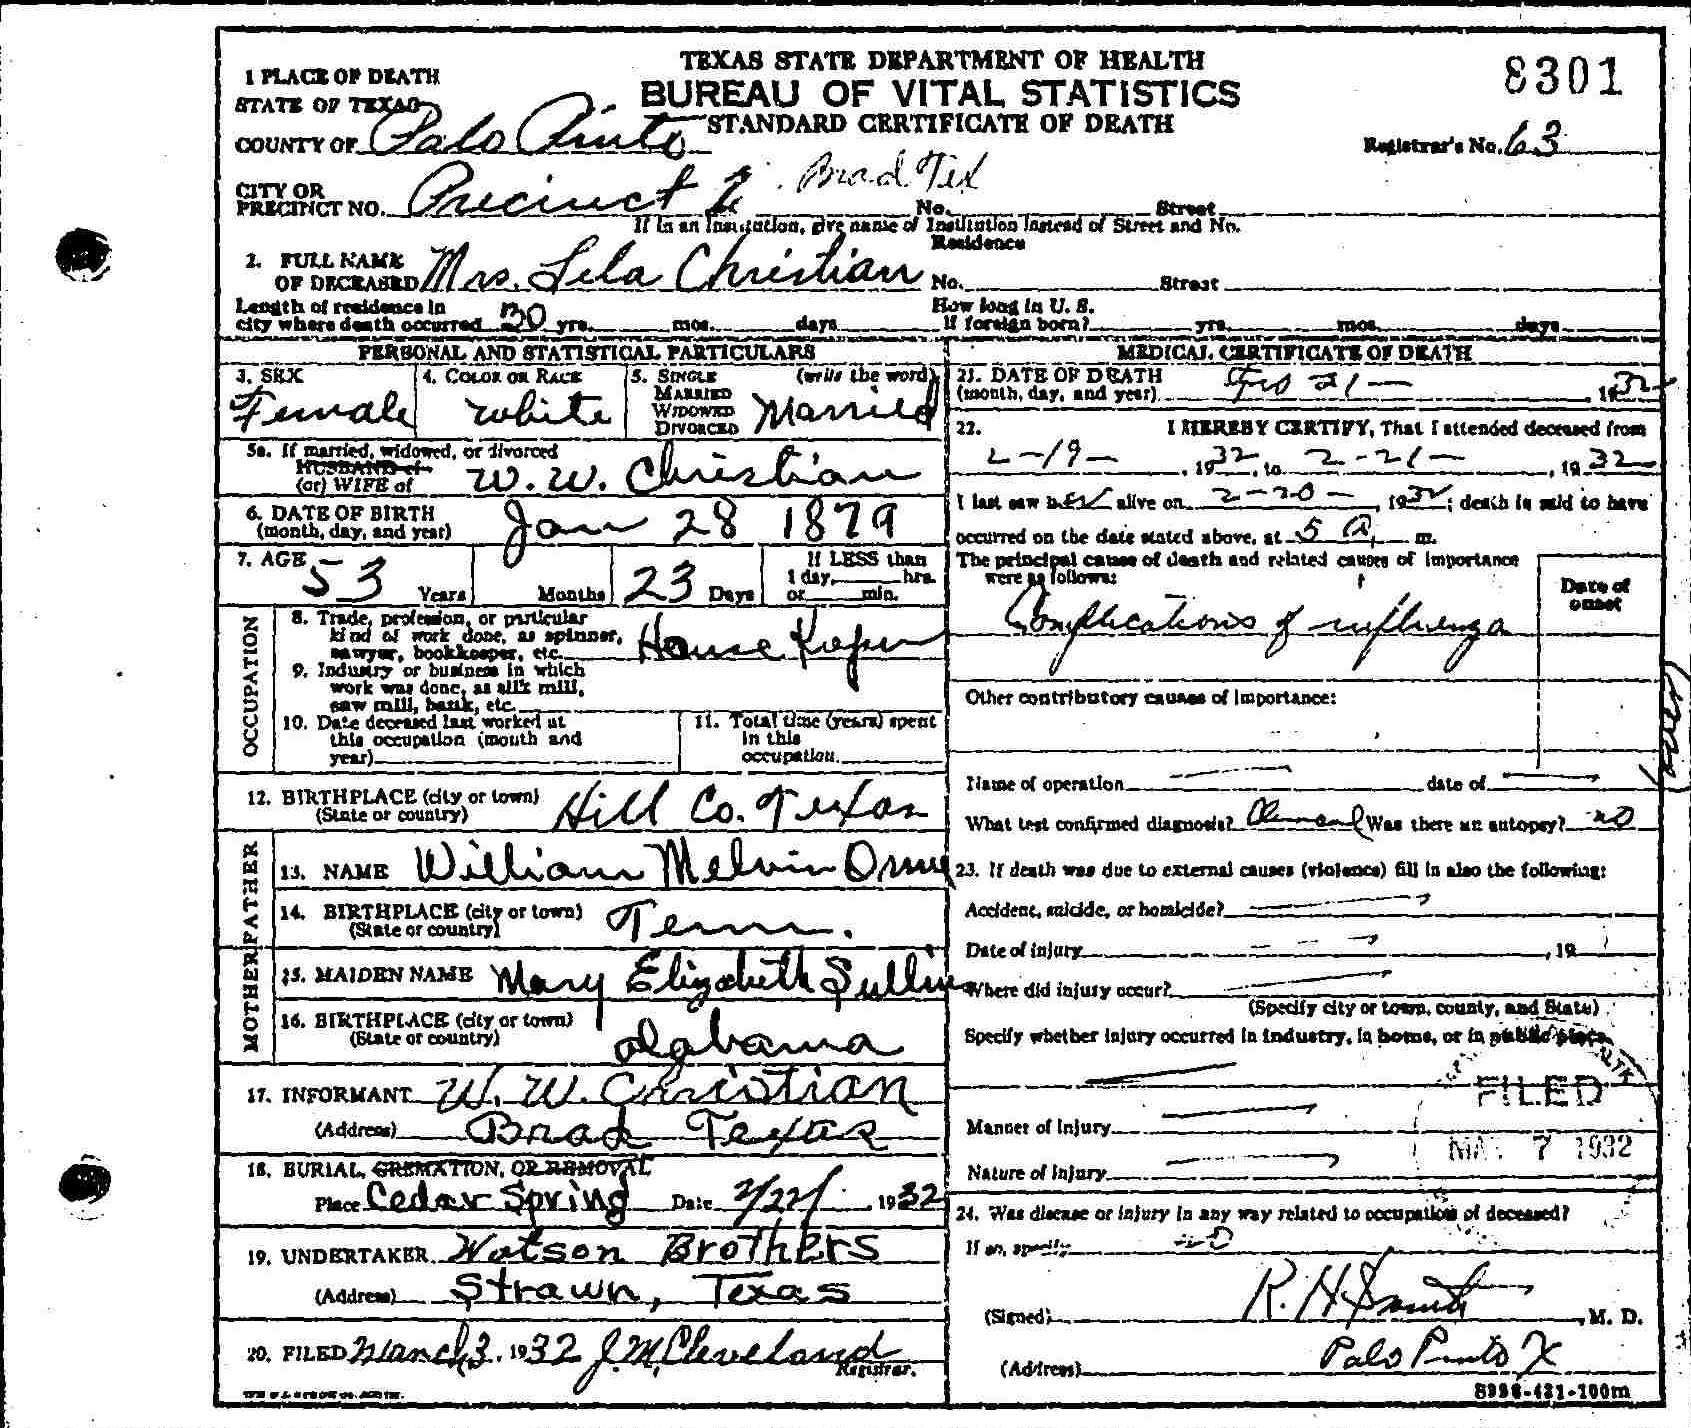 TEXAS STATE DEPARTMENT OF HEALTH
BUREAU OF VITAL STATISTICS
STANDARD CERTIFICATE OF DEATH
8301
Registrar's No. 63
1 PLACE OF DEATH
STATE OF TEXAS
COUNTY OF Palo Pinto
CITY OR
PRECINCT NO. Precinct Brad Tex
No. Street
If in an Institution, give name of Institution Instead of Street and No.
Residence
2. FULL NAME
OF DECEASED Mrs. Lela Christian No. Street
Length of residence in
city where death occurred 30 yrs. mos. days
How long in U. S.
If foreign born? yrs. mos. days
PERSONAL AND STATISTICAL PARTICULARS
3. SEX
Female
4. COLOR OR RACE
White
5. SINGLE (write the word)
MARRIED
WIDOWED
DIVORCED Married
5a. If married, widowed, or divorced
HUSBAND of
(or) WIFE of W. W. Christian
6. DATE OF BIRTH
(month, day, and year) Jan 28 1879
7. AGE 53 Years Months 23 Days
If LESS than
1 day, hrs.
or min.
OCCUPATION
8. Trade, profession, or particular
kind of work done, as spinner,
sawyer, bookkeeper, etc. House Keeper
9. Industry or business in which
work was done, as silk mill,
saw mill, bank, etc.
10. Date deceased last worked at
this occupation (month and
year)
11. Total time (years) spent
in this
occupation
12. BIRTHPLACE (city or town)
(State or country) Hill Co. Texas
FATHER
13. NAME William Melvin Orme
14. BIRTHPLACE (city or town)
(State or country) Tenn.
MOTHER
15. MAIDEN NAME Mary Elizabeth Sullins
16. BIRTHPLACE (city or town)
(State or country) Alabama
17. INFORMANT W. W. Christian
(Address) Brad Texas
18. BURIAL, CREMATION, OR REMOVAL
Place Cedar Spring Date 2/22/ 1932
19. UNDERTAKER Watson Brothers
(Address) Strawn, Texas
20. FILED March 3, 1932 J. M. Cleveland
Registrar.
MEDICAL CERTIFICATE OF DEATH
21. DATE OF DEATH
(month, day, and year) 21 - 1932
22. I HEREBY CERTIFY, That I attended deceased from
2-19-, 1932, to 2-21-, 1932
I last saw her alive on 2-20-, 1932; death is said to have
occurred on the date stated above, at 5 A. m.
The principal cause of death and related causes of importance
were as follows:
Date of
onset
Complications of influenza
Other contributory causes of importance:
Name of operation date of
What test confirmed diagnosis? Was there an autopsy? no
23. If death was due to external causes (violence) fill in also the following:
Accident, suicide, or homicide?
Date of injury , 19
Where did injury occur?
(Specify city or town, county, and State)
Specify whether injury occurred in industry, in home, or in public place.
FILED
7 1932
Manner of injury
Nature of injury
24. Was disease or injury in any way related to occupation of deceased?
If so, specify no
(Signed) R. H. Smith, M. D.
(Address) Palo Pinto X